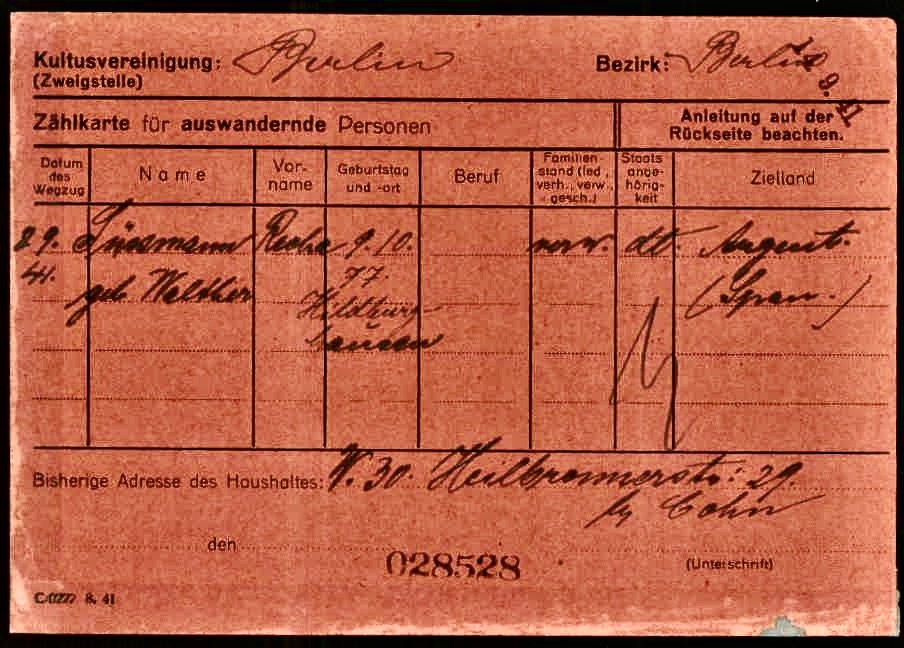 Kultusvereinigung: Berlin Bezirk: Berlin
(Zweigstelle)
Zählkarte für auswandernde Personen
Anleitung auf der
Rückseite beachten.
Datum
des
Wegzug
Name
Vor-
name
Geburtstag
und -ort
Beruf
Familien-
stand (led.,
verh., verw.,
gesch.)
Staats
ange-
hörig-
keit
Zielland
9. Süssmann 9.10. verw. dt. Argent.
41. geb. Walther 77. (Span.)
Hildburg-
hausen
Bisherige Adresse des Haushaltes: W. 30. Heilbronnerstr. 29.
Cohn
den
028528
(Unterschrift)
C/0227 8. 41